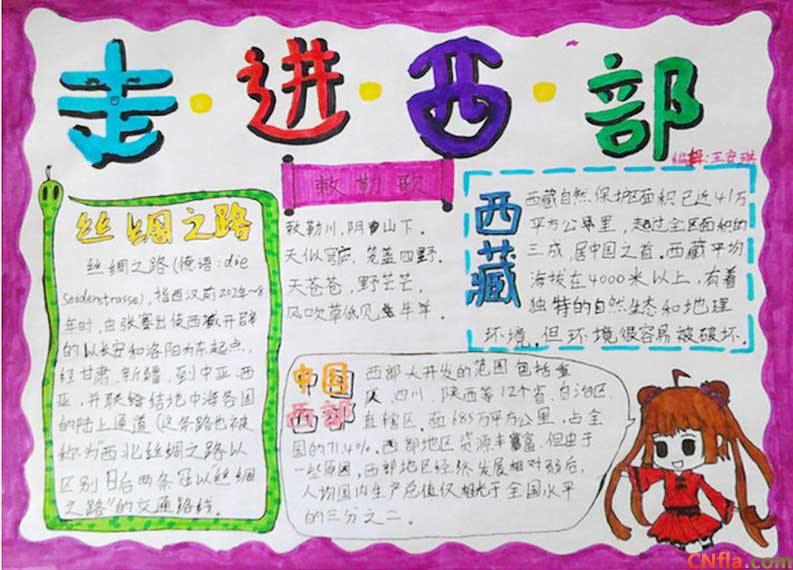 走·进·西·部
编辑:王安琪
丝绸之路
丝绸之路(德语:die
Seidenstrasse),指西汉前202年~8
年时,由张骞出使西藏开辟
的以长安和洛阳为东起点,
经甘肃、新疆,到中亚、西
亚,并联络结地中海各国
的陆上通道(这条路也被
称为"西北丝绸之路以
区别日后两条冠以"丝绸
之路"的交通路线。
敕勒歌
敕勒川,阴山下。
天似穹庐,笼盖四野。
天苍苍,野芒芒,
风吹草低见牛羊。
西藏
西藏自然保护区面积已近41万
平方公里,超过全区面积的
三成,居中国之首。西藏平均
海拔在4000米以上,有着
独特的自然生态和地理
环境。但环境很容易被破坏。
中国
西部
西部大开发的范围包括重
庆、四川、陕西等12个省、自治区
直辖区,面685万平方公里,占全
国的71.4%。西部地区资源丰富,但由于
一些原因,西部地区经张发展相对弱后,
人均国内生产总值仅相当于全国水平
的三分之二。
CNfla.com